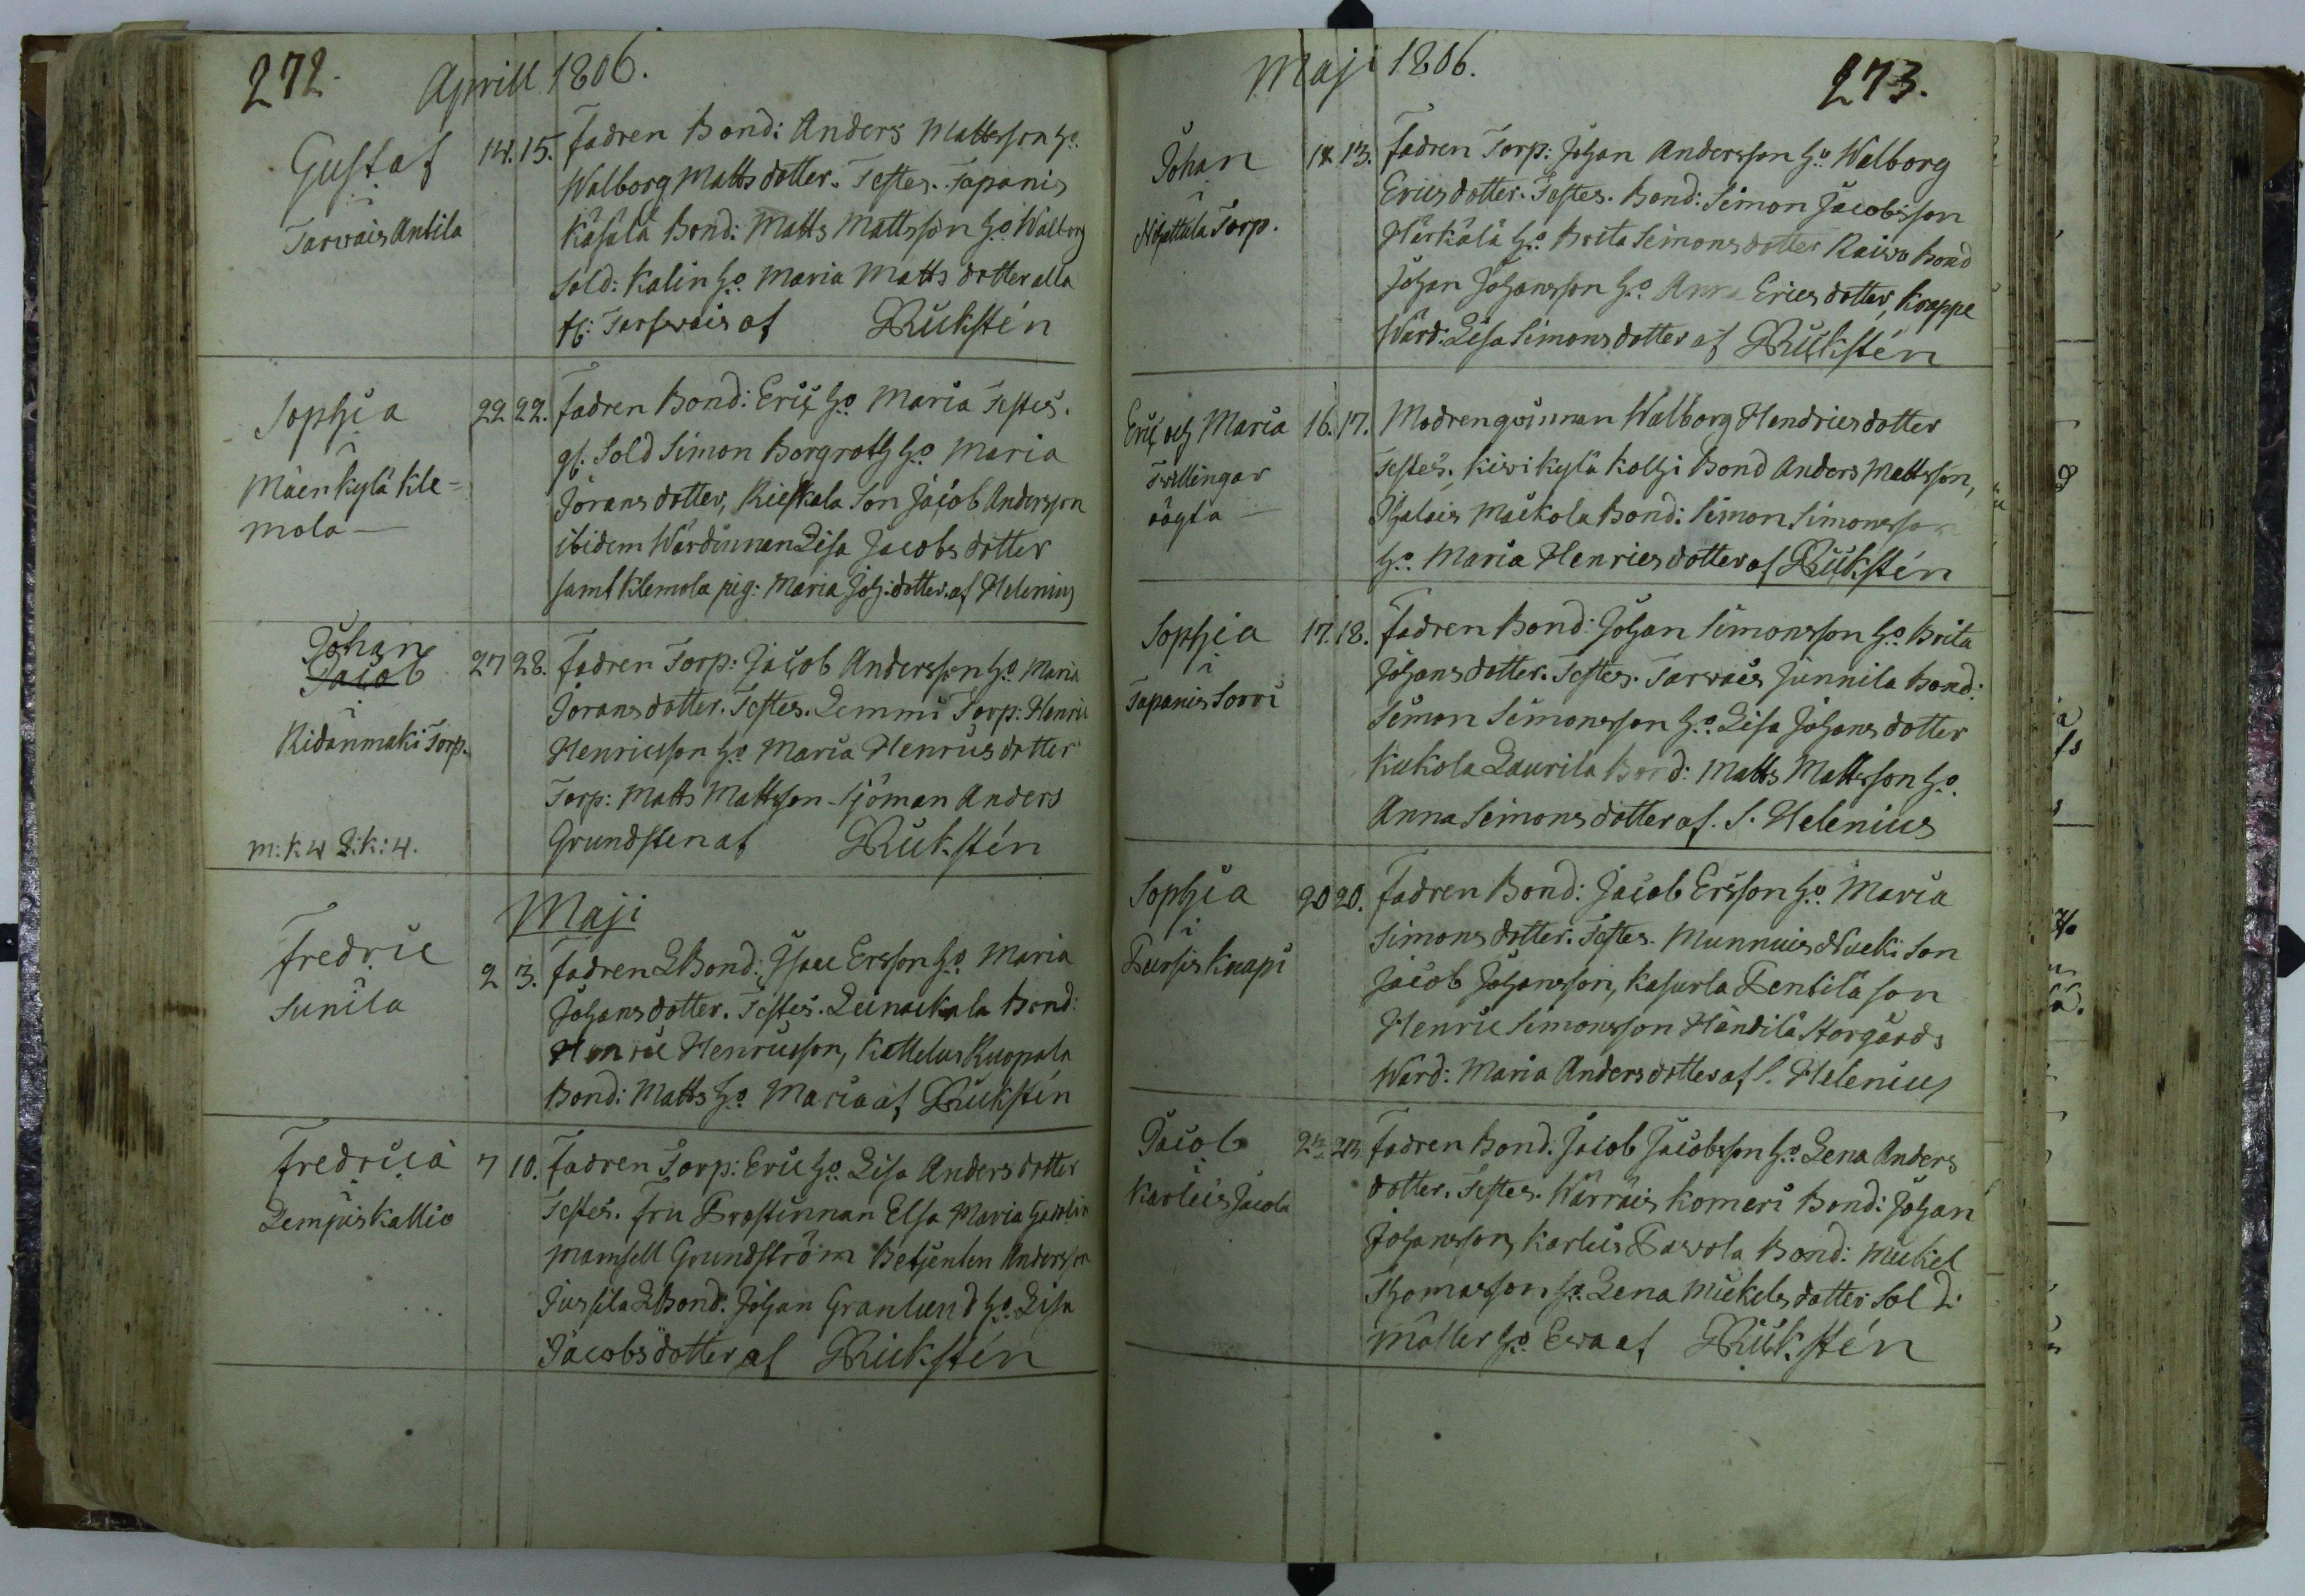 272.
Aprill 1806.
Gustaf
i
Tarvais Antila
14. 15. fadren Bond: Anders Mattsson ho.
Walborg Matts dotter. Testes. Tapanis
Käsälä Bond: Matts Mattsson ho Walborg
Sold: Kalin ho. Maria Matts dotter alla
fr. Tarfvais af GRickstén
Sophia
i
Mäenkylä Kle=
mola —
22 22. fadren Bond: Eric ho Maria Testes.
gl. Sold Simon Borgroth ho Maria
Jörans dotter, Rieskala Son Jacob Andersson
ibidem Wärdinnan Lisa Jacobs dotter
samt Klemola pig: Maria Joh: dotter. af Helenius
Johan
Jacob
i
Ridanmäki Torp.
m: k 4 L: k: 4.
27 28. fadren Torp: Jacob Andersson ho Maria
Jörans dotter. Testes. Lemmi Torp: Henric
Henricsson ho Maria Henrics dotter
Torp: Matts Mattsson Sjöman Anders
Grundsten af GRickstén
Maji
Fredric
Sunila
2 3. fadren LBond: Isac Ersson ho Maria
Johans dotter. Testes. Leinakkala Bond:
Henric Henricsson, Kattelus Ruopala
Bond: Matts ho Maria af GRickstén
Fredrica
Lempis Kallio
7 10. fadren Torp: Eric ho Lisa Anders dotter
Testes. fru Prostinnan Elsa Maria Gadolin
Mamsell Grundström Betjenten Andersson
Jussila LBond. Johan Granlund ho. Lisa
Jacobs dotter af GRickstén
Maji 1806.
273.
Johan
i
Nihattula Torp.
12. 13. fadren Torp: Johan Andersson ho Walborg
Erics dotter. Testes. Bond: Simon Jacobsson
Härkälä ho. Brita Simons dotter Raivo Bond
Johan Johansson ho Anna Erics dotter, Knappe
Wärd. Lisa Simons dotter af GRickstén
Eric och Maria
Twillingar
oägta —
16. 17. Modren qvinnan Walborg Hendrics dotter
Testes. Kivikylä Kolhi Bond Anders Mattsson,
Ihalais Maikola Bond: Simon Simonsson
ho. Maria Henrics dotter af GRickstén
Sophia
i
Tapanis Sorri
17. 18. fadren Bond: Johan Simonsson ho. Brita
Johans dotter. Testes. Tarvais Junnila Bond:
Simon Simonsson ho. Lisa Johans dotter
Kukola Laurila Bond: Matts Mattsson ho.
Anna Simons dotter af. S. Helenius
Sophia
i
Pursis Knapi
20 20. fadren Bond: Jacob Ersson ho. Maria
Simons dotter. Testes. Munnuis Nucki Son
Jacob Johansson, Kasurla Pentilä son
Henric Simonsson Händilä Storgårds
Wärd: Maria Anders dotter af S. Helenius
Jacob
Karleis Jacola
23. 23. fadren Bond: Jacob Jacobsson ho. Lena Anders
dotter. Testes. Wärräis Komeri Bond: Johan
Johansson, Karleis Pavola Bond: Mickel
Thomasson ho. Lena Mickels dotter Sold:
Möller ho Eva af GRickstén